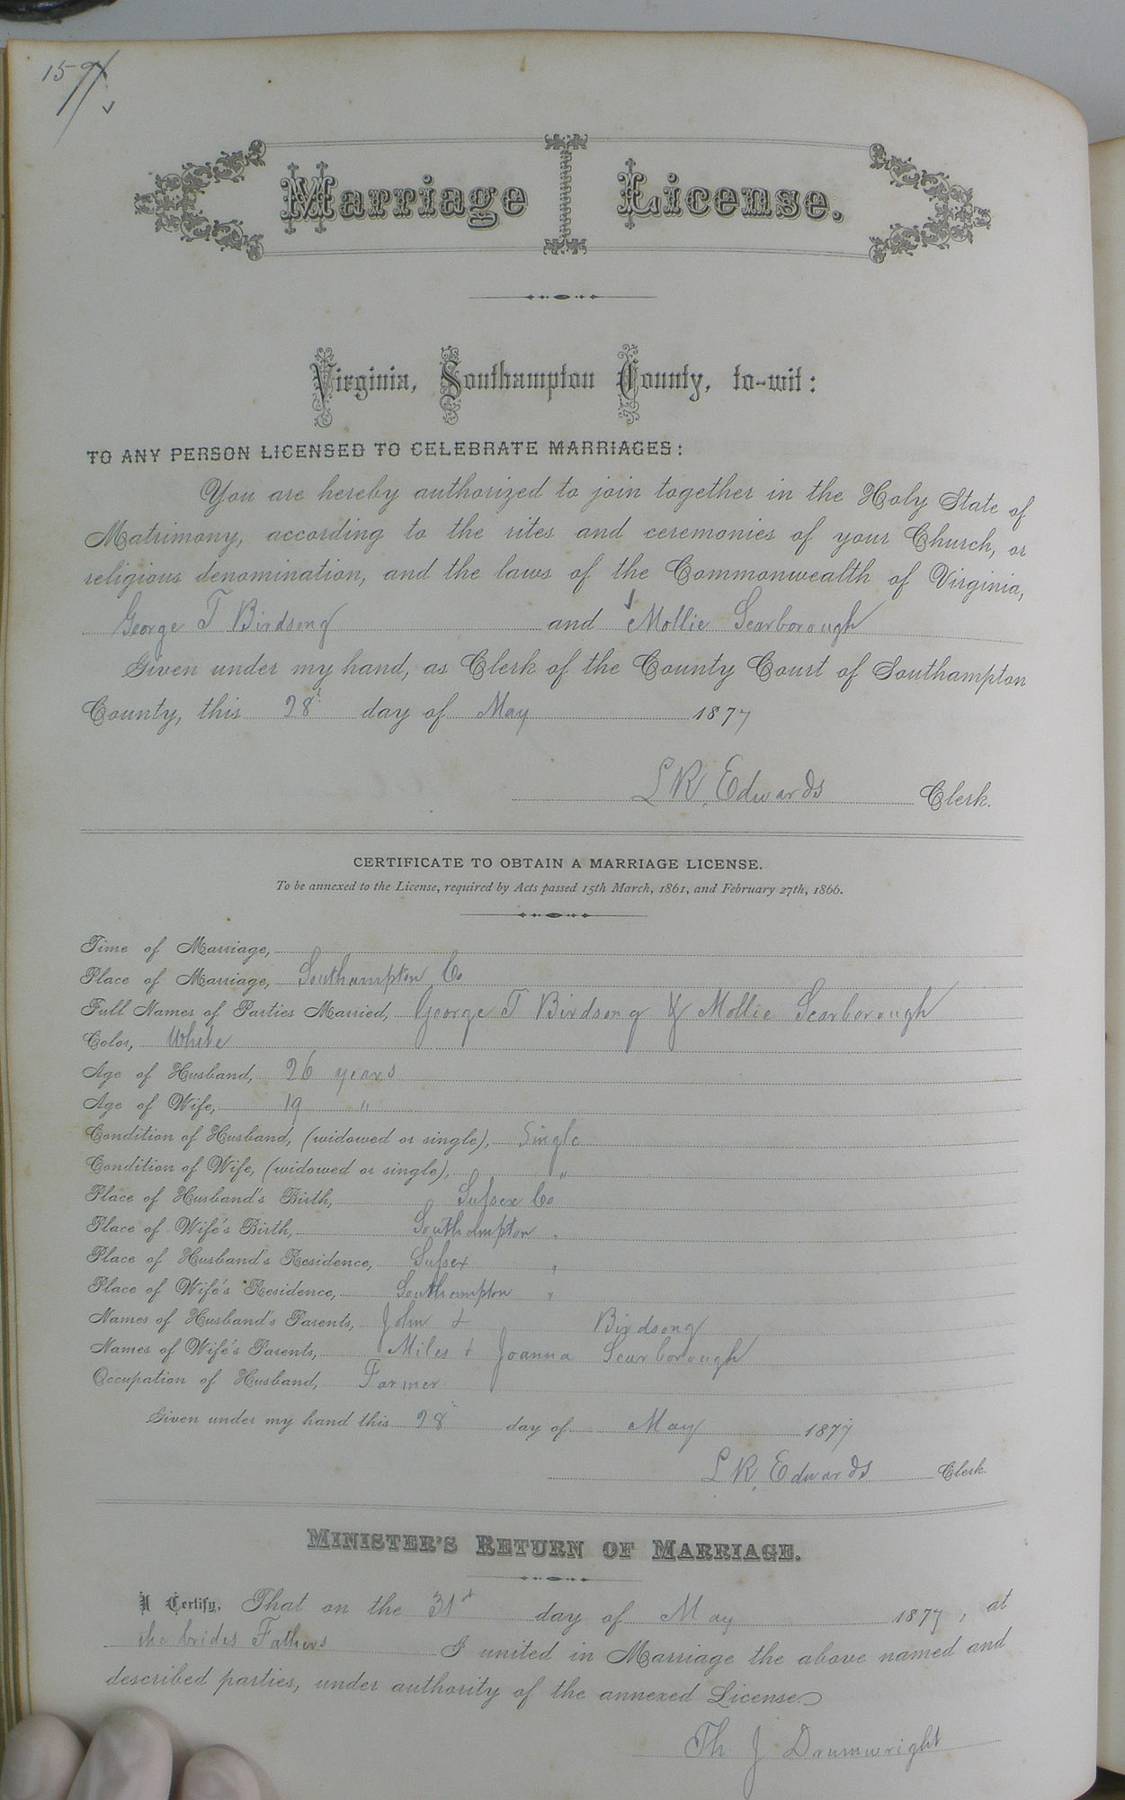 Marriage License.
Virginia, Southampton County, to-wit:
TO ANY PERSON LICENSED TO CELEBRATE MARRIAGES:
You are hereby authorized to join together in the Holy State of
Matrimony, according to the rites and ceremonies of your Church, or
religious denomination, and the laws of the Commonwealth of Virginia,
George T Birdsong and Mollie Scarborough
Given under my hand, as Clerk of the County Court of Southampton
County, this 28 day of May 1877
L R. Edwards Clerk.
CERTIFICATE TO OBTAIN A MARRIAGE LICENSE.
To be annexed to the License, required by Acts passed 15th March, 1861, and February 27th, 1866.
Time of Marriage,
Place of Marriage, Southampton Co
Full Names of Parties Married, George T Birdsong & Mollie Scarborough
Color, White
Age of Husband, 26 years
Age of Wife, 19 "
Condition of Husband, (widowed or single), Single
Condition of Wife, (widowed or single), "
Place of Husband's Birth, Sussex Co
Place of Wife's Birth, Southampton "
Place of Husband's Residence, Sussex "
Place of Wife's Residence, Southampton "
Names of Husband's Parents, John & Birdsong
Names of Wife's Parents, Miles & Joanna Scarborough
Occupation of Husband, Farmer
Given under my hand this 28 day of May 1877
L R. Edwards Clerk.
MINISTER'S RETURN OF MARRIAGE.
I Certify, That on the 31st day of May 1877, at
the brides Fathers I united in Marriage the above named and
described parties, under authority of the annexed License.
Th J Drumwright